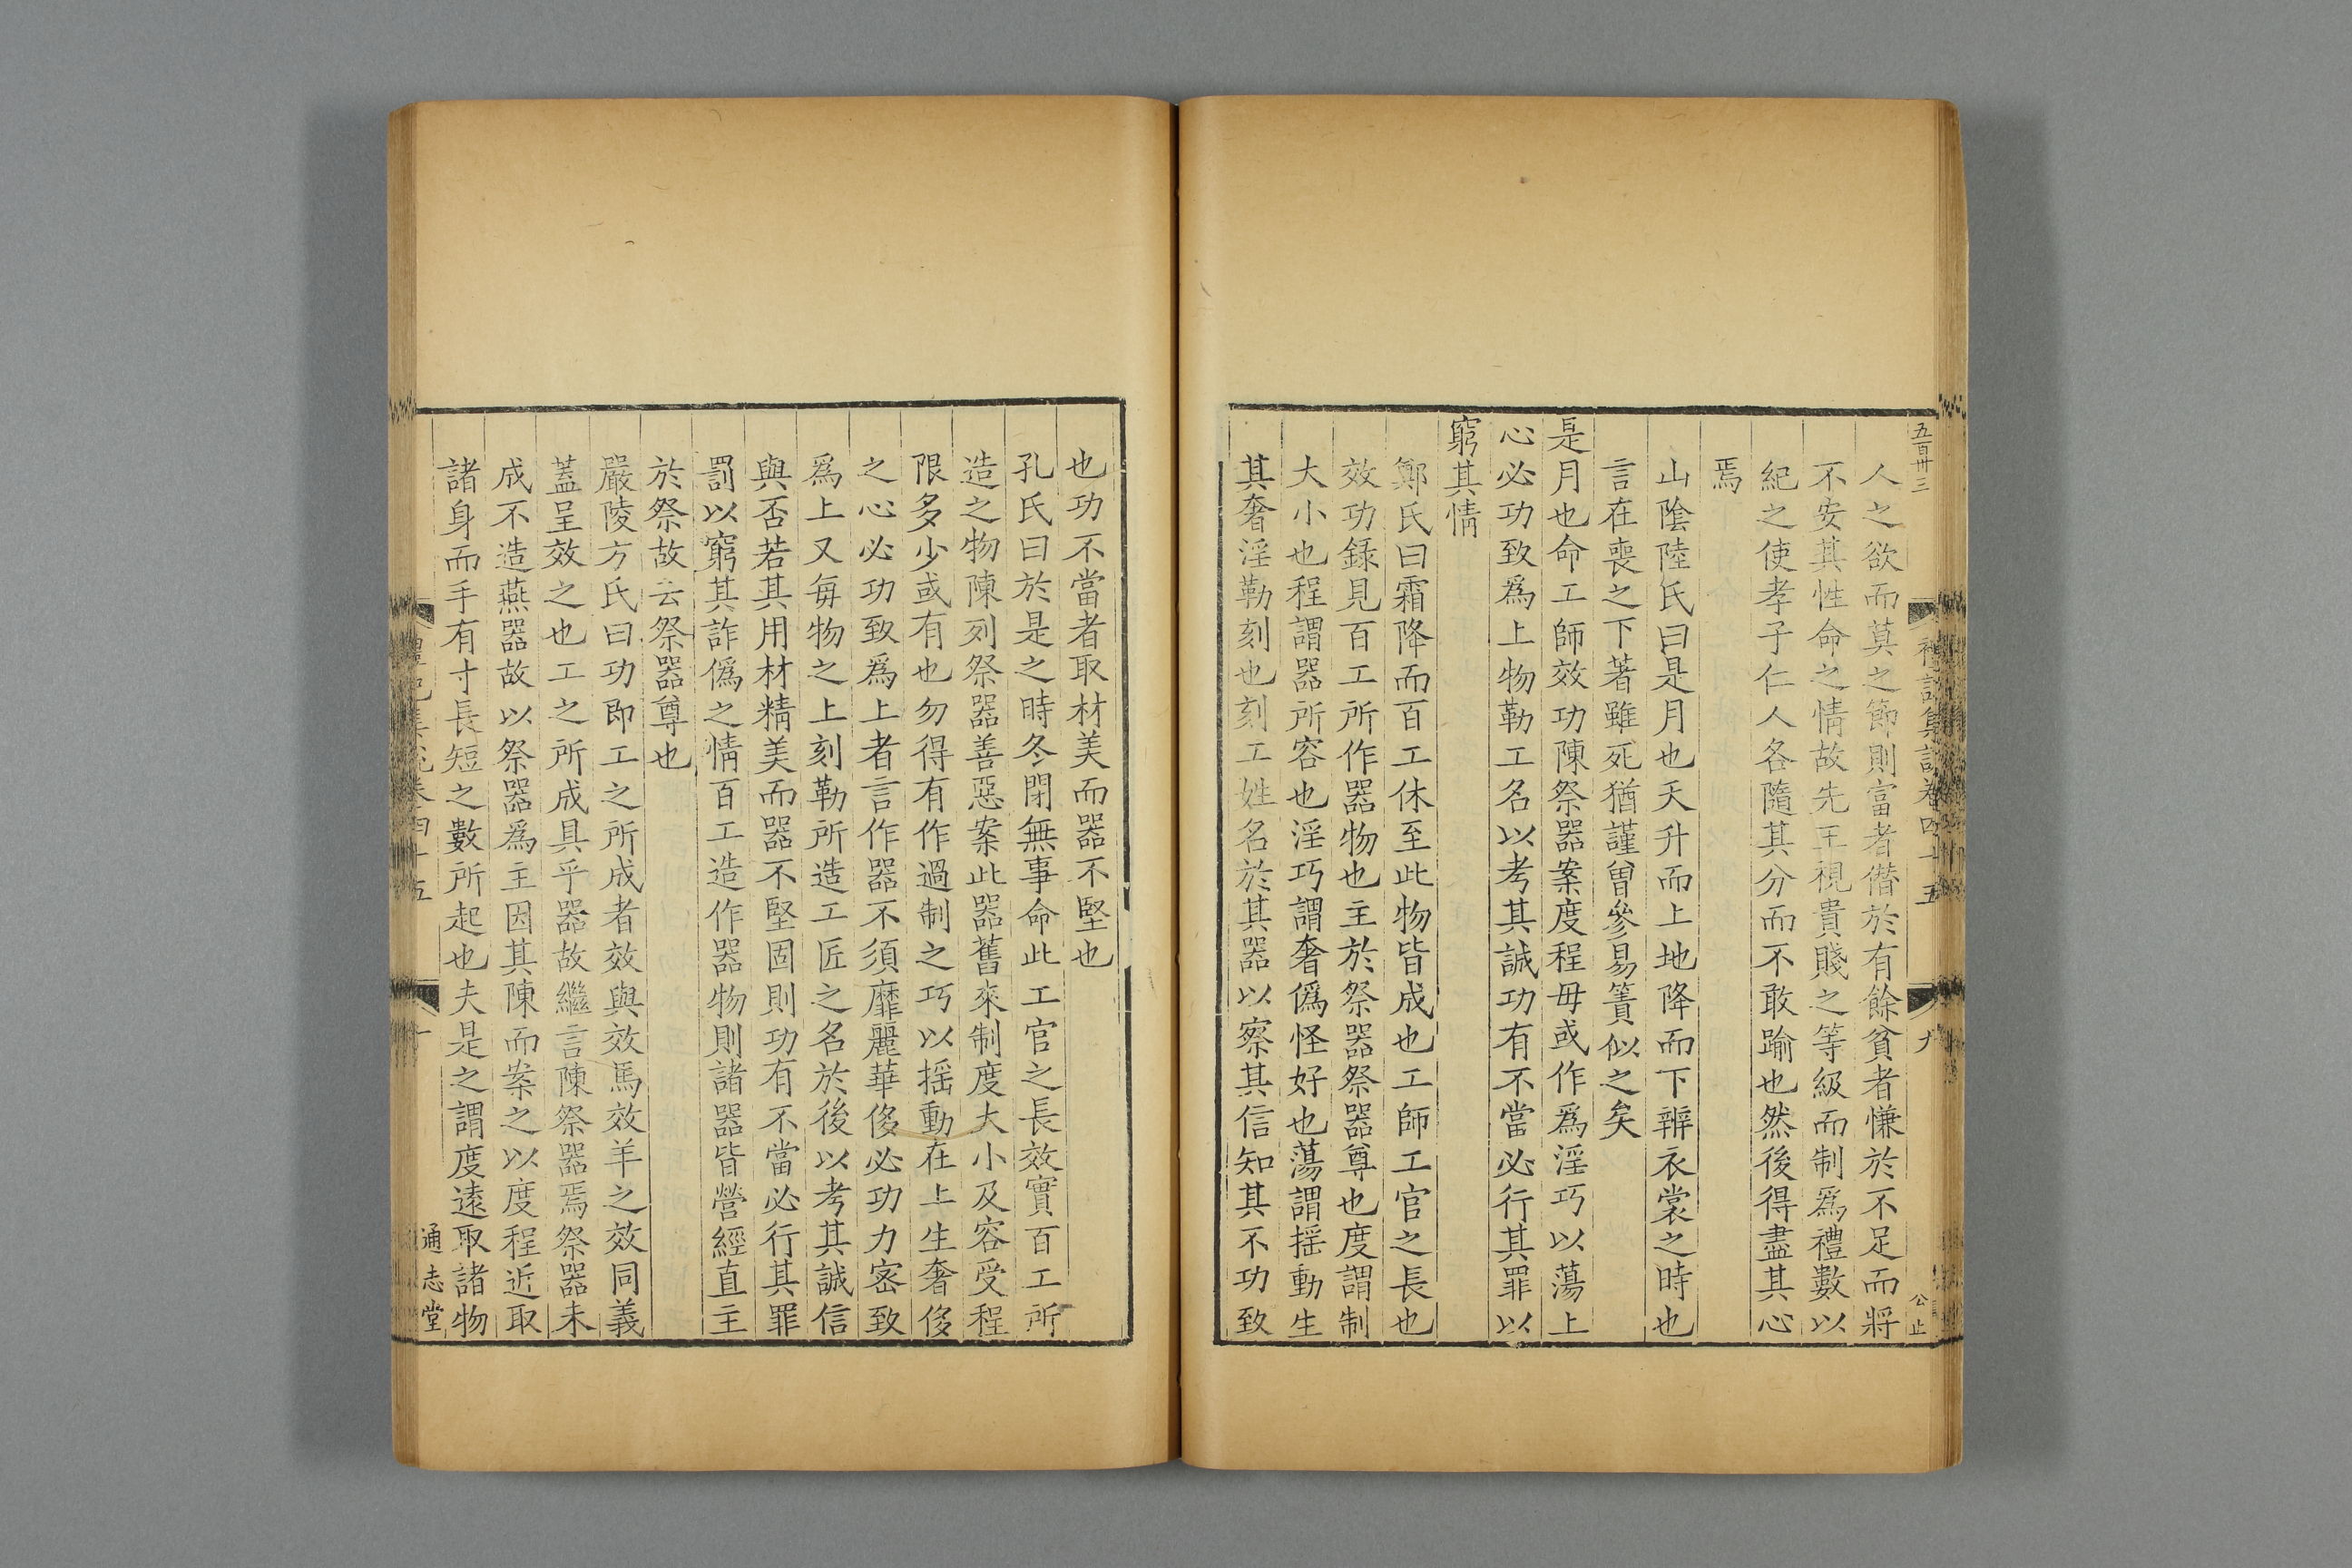 五百卅三
禮記集說卷四十五
九
公止
人之欲而莫之節則富者僭於有餘貧者慊於不足而將
不安其性命之情故先王視貴賤之等級而制爲禮數以
紀之使孝子仁人各隨其分而不敢踰也然後得盡其心
焉
山陰陸氏曰是月也天升而上地降而下辨衣裳之時也
言在喪之下著雖死猶謹曾參易簀似之矣
是月也命工師效功陳祭器案度程毋或作爲淫巧以蕩上
心必功致爲上物勒工名以考其誠功有不當必行其罪以
窮其情
鄭氏曰霜降而百工休至此物皆成也工師工官之長也
效功錄見百工所作器物也主於祭器祭器尊也度謂制
大小也程謂器所容也淫巧謂奢僞怪好也蕩謂揺動生
其奢淫勒刻也刻工姓名於其器以察其信知其不功致
也功不當者取材美而器不堅也
孔氏曰於是之時冬閉無事命此工官之長效實百工所
造之物陳列祭器善惡案此器舊來制度大小及容受程
限多少或有也勿得有作過制之巧以揺動在上生奢侈
之心必功致爲上者言作器不須靡麗華侈必功力密致
爲上又每物之上刻勒所造工匠之名於後以考其誠信
與否若其用材精美而器不堅固則功有不當必行其罪
罰以窮其詐僞之情百工造作器物則諸器皆營經直主
於祭故云祭器尊也
嚴陵方氏曰功即工之所成者效與效馬效羊之效同義
蓋呈效之也工之所成具乎器故繼言陳祭器焉祭器未
成不造燕器故以祭器爲主因其陳而案之以度程近取
諸身而手有寸長短之數所起也夫是之謂度遠取諸物
禮記集說卷四十五
十
通志堂